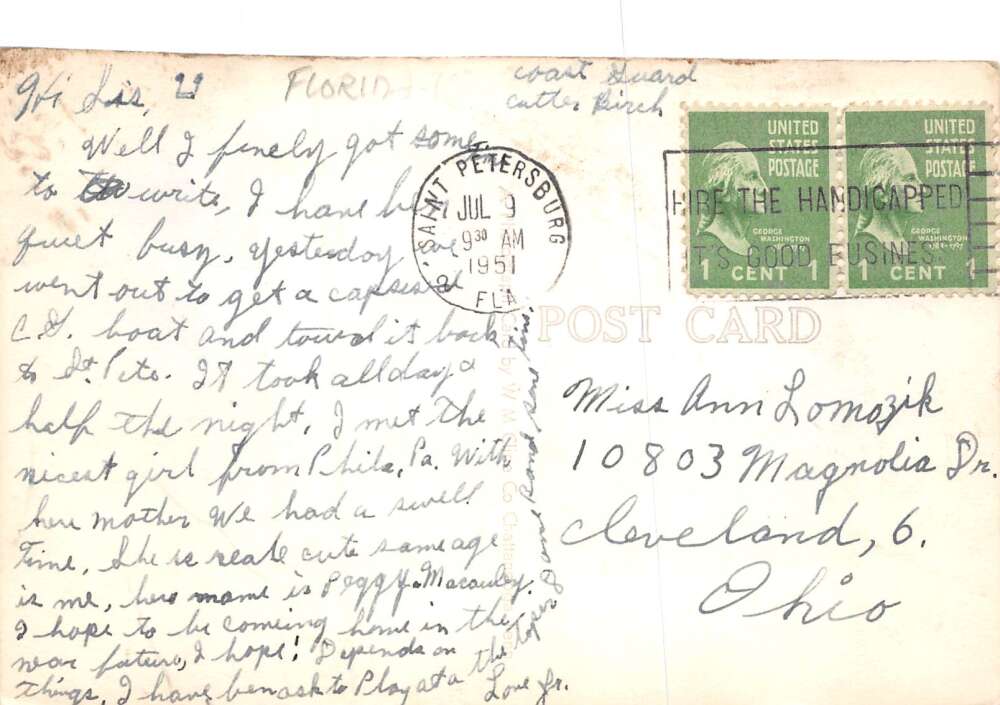 Hi Sis,
FLORIDA
Coast Guard
Cutter Birch
Well I finely got some
to write, I have b
quiet busy, yesterday we
went out to get a capsised
C.G. boat and towed it back
to St. Pete. It took all day &
half the night, I met the
nicest girl from Phila, Pa. With
here mother We had a swell
Time, She is reale cute same age
is me, here name is Peggy Macauley.
I hope to be comeing home in the
near future, I hope! Depends on
things, I have ben ask to Play at a
the
dance band some time.
Love Jr.
SAINT PETERSBURG
JUL 9
9 30 AM
1951
FLA.
2
UNITED STATES POSTAGE
GEORGE WASHINGTON
1 CENT 1
UNITED STATES POSTAGE
GEORGE WASHINGTON
1 CENT 1
HIRE THE HANDICAPPED
IT'S GOOD BUSINESS
POST CARD
Miss Ann Lomozik
10803 Magnolia Dr.
Cleveland, 6.
Ohio